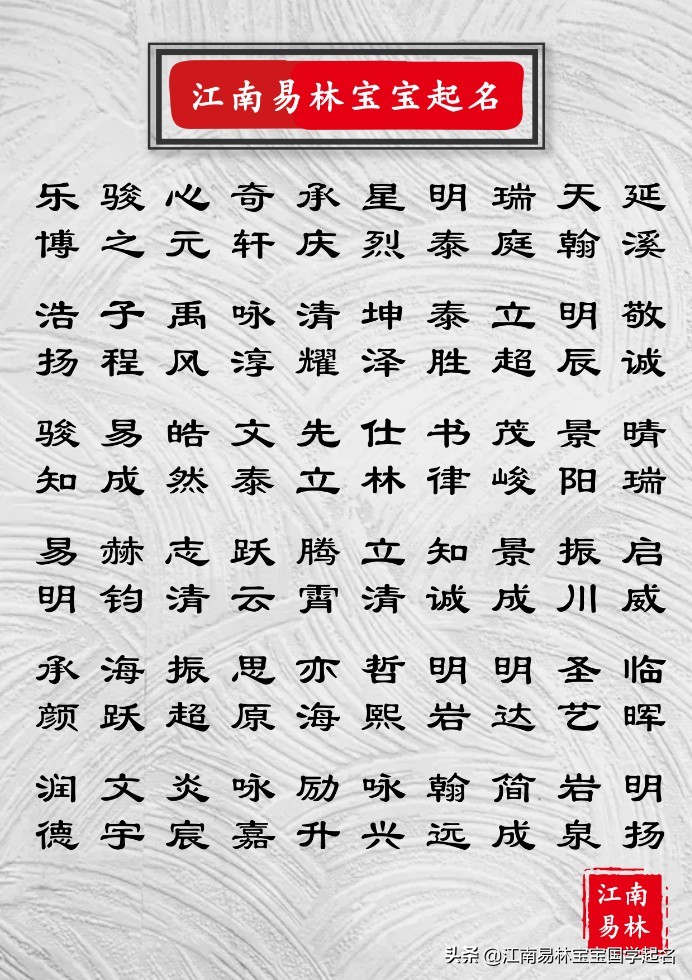 江南易林宝宝起名
乐 骏 心 奇 承 星 明 瑞 天 延
博 之 元 轩 庆 烈 泰 庭 翰 溪
浩 子 禹 咏 清 坤 泰 立 明 敬
扬 程 风 淳 耀 泽 胜 超 辰 诚
骏 易 皓 文 先 仕 书 茂 景 晴
知 成 然 泰 立 林 律 峻 阳 瑞
易 赫 志 跃 腾 立 知 景 振 启
明 钧 清 云 霄 清 诚 成 川 威
承 海 振 思 亦 哲 明 明 圣 临
颜 跃 超 原 海 熙 岩 达 艺 晖
润 文 炎 咏 励 咏 翰 简 岩 明
德 宇 宸 嘉 升 兴 远 成 泉 扬
江南
易林
头条 @江南易林宝宝国学起名